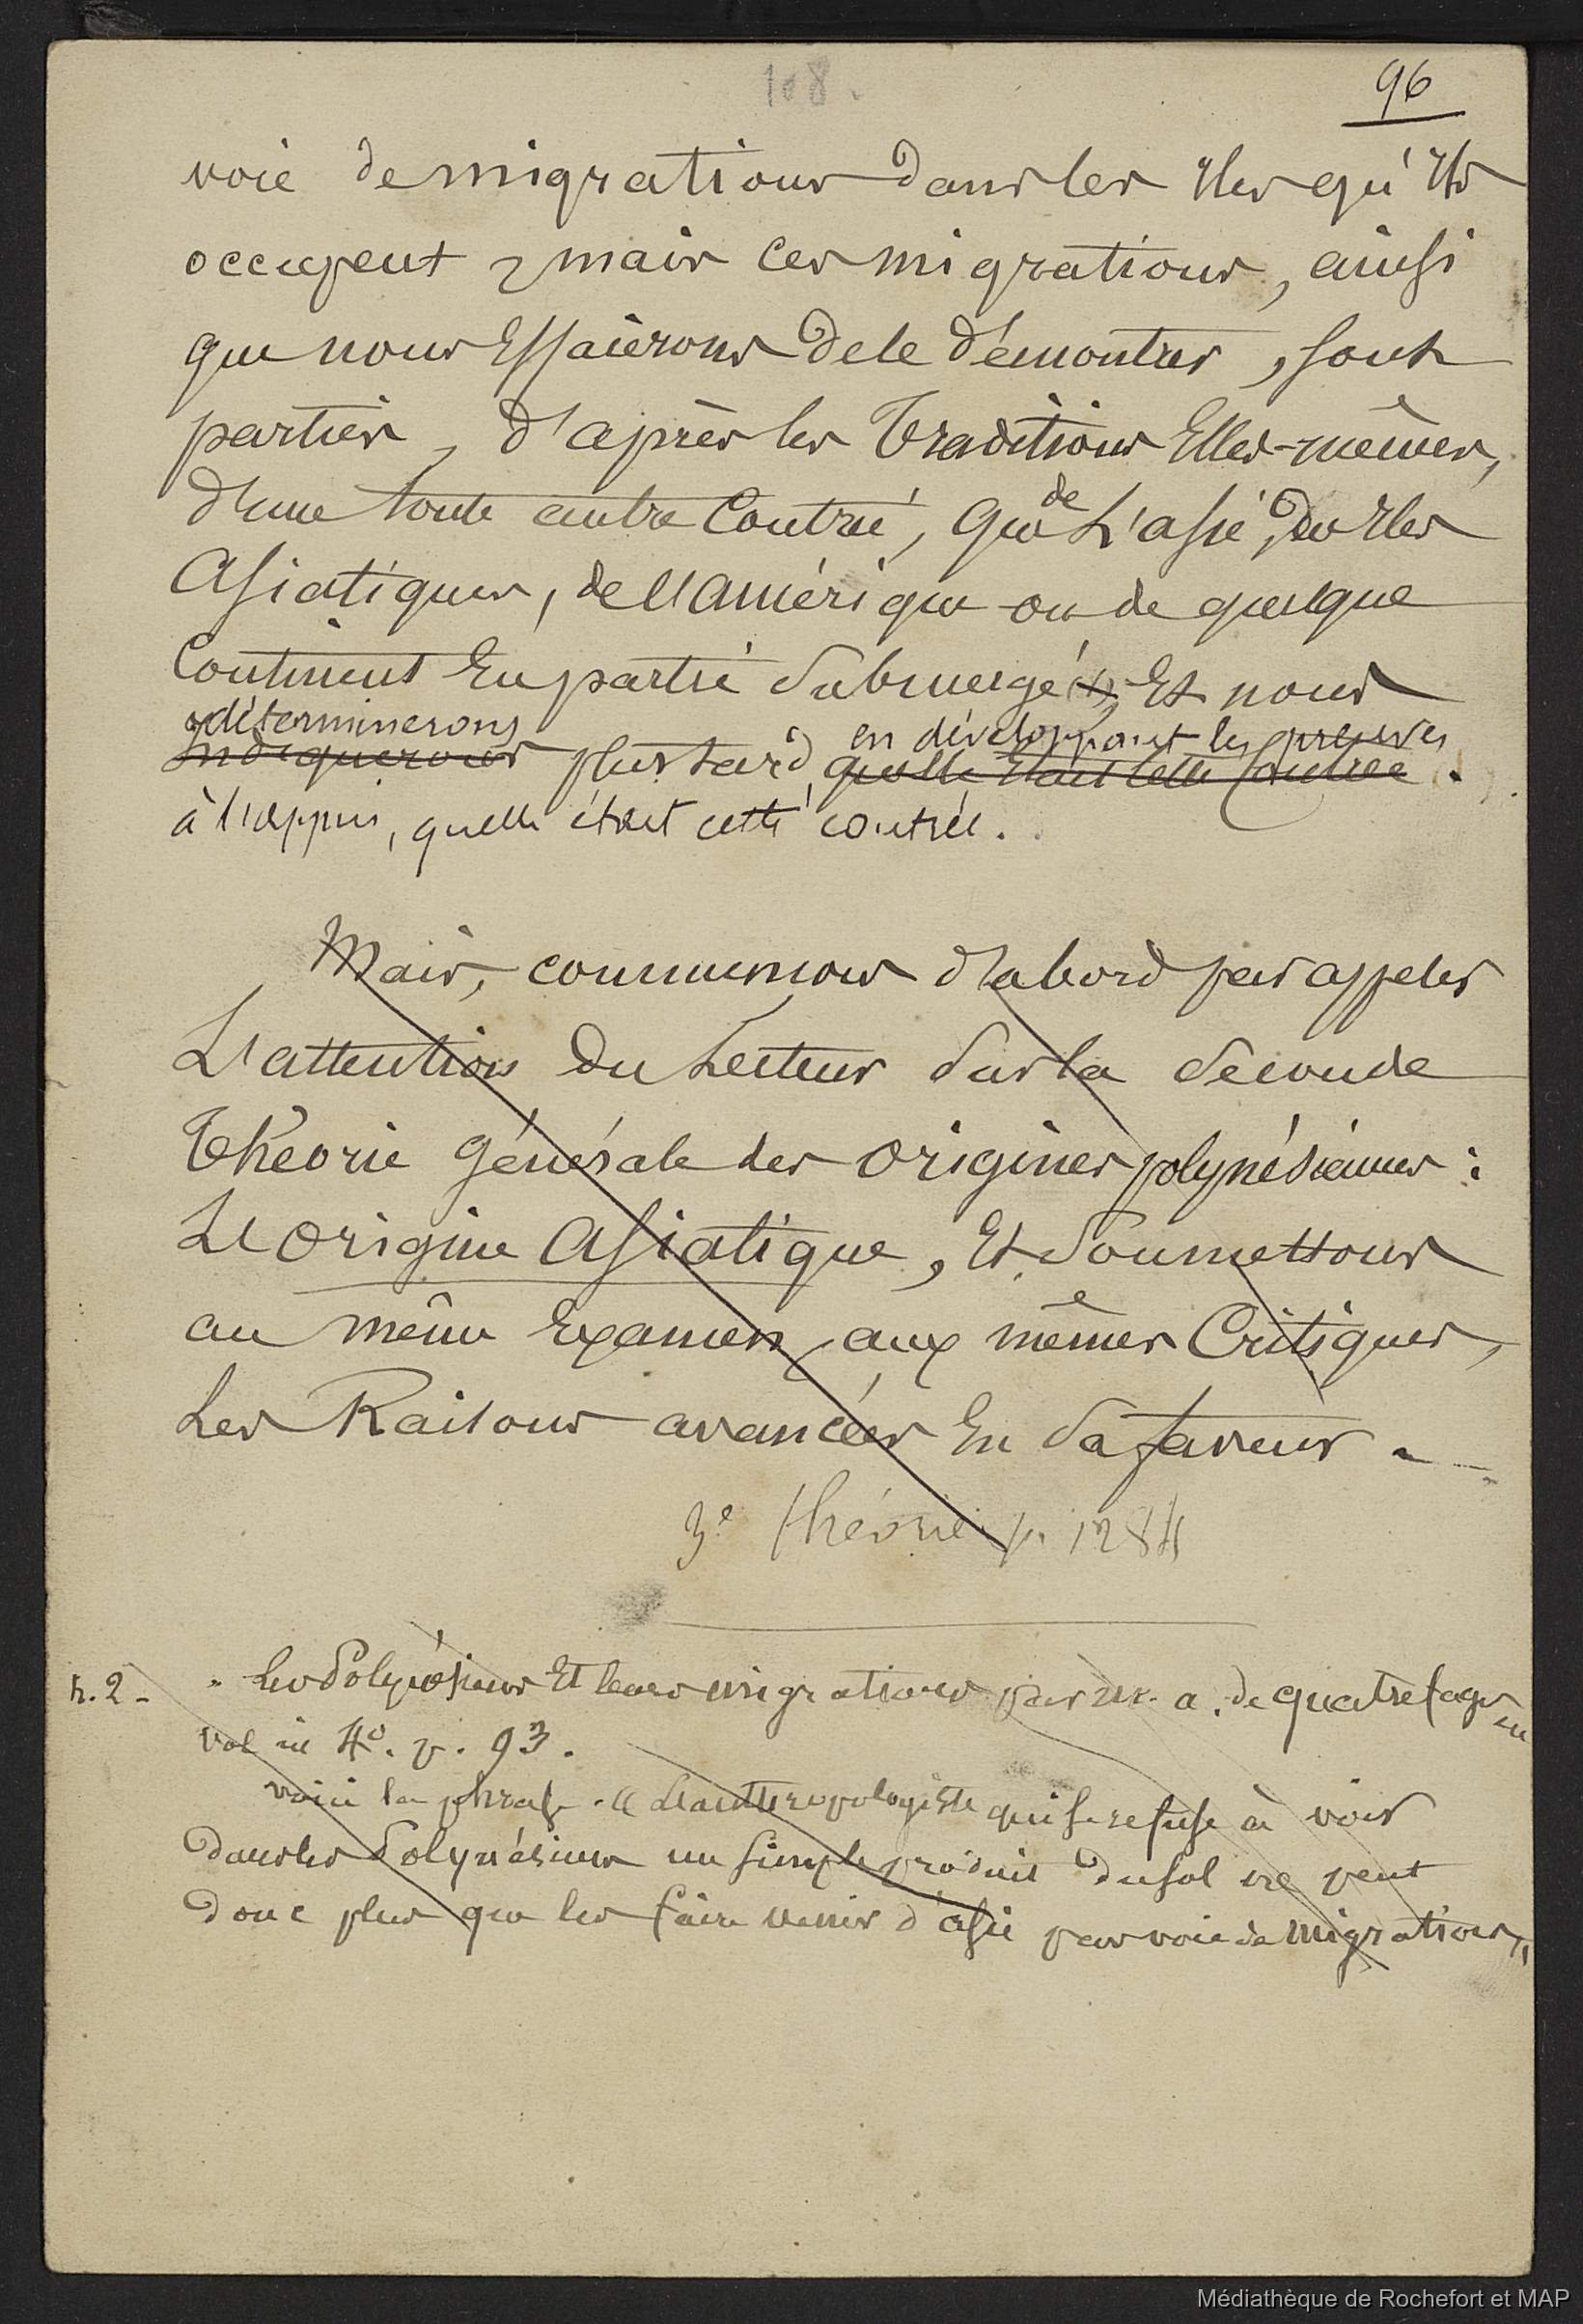 108.
96
voie de migrations dans les Iles qu'Ils
occupent ; mais ces migrations, ainsi
que nous Essaierons de le démontrer, sont
parties, d'après les Traditions Elles-mêmes,
d'une toute autre Contrée, que de L'asie, des Iles
Asiatiques, de l'Amérique ou de quelque
Continent En partie Submergé (1), Et nous
déterminerons
Indiquerons plus tard, en développant les preuves
quelle Etait cette Contrée.
à l'appui, quelle était cette contrée.
Mais, commençons d'abord par appeler
L'attention Du Lecteur Sur la Seconde
Théorie générale des origines polynésiennes :
L'Origine Asiatique, Et Soumettons
au même Examen, aux mêmes Critiques,
Les Raisons avancées En Sa faveur.
3e théorie p. 1284
n. 2 - " Les Polynésiens Et leurs migrations par Mr. a. de quatrefages, un
vol in 4o. p. 93.
voici la phrase. « L'anthropologiste qui se refuse à voir
Dans les Polynésiens un simple produit du sol ne peut
Donc plus que les faire venir d'asie par voie de migrations,,
Médiathèque de Rochefort et MAP